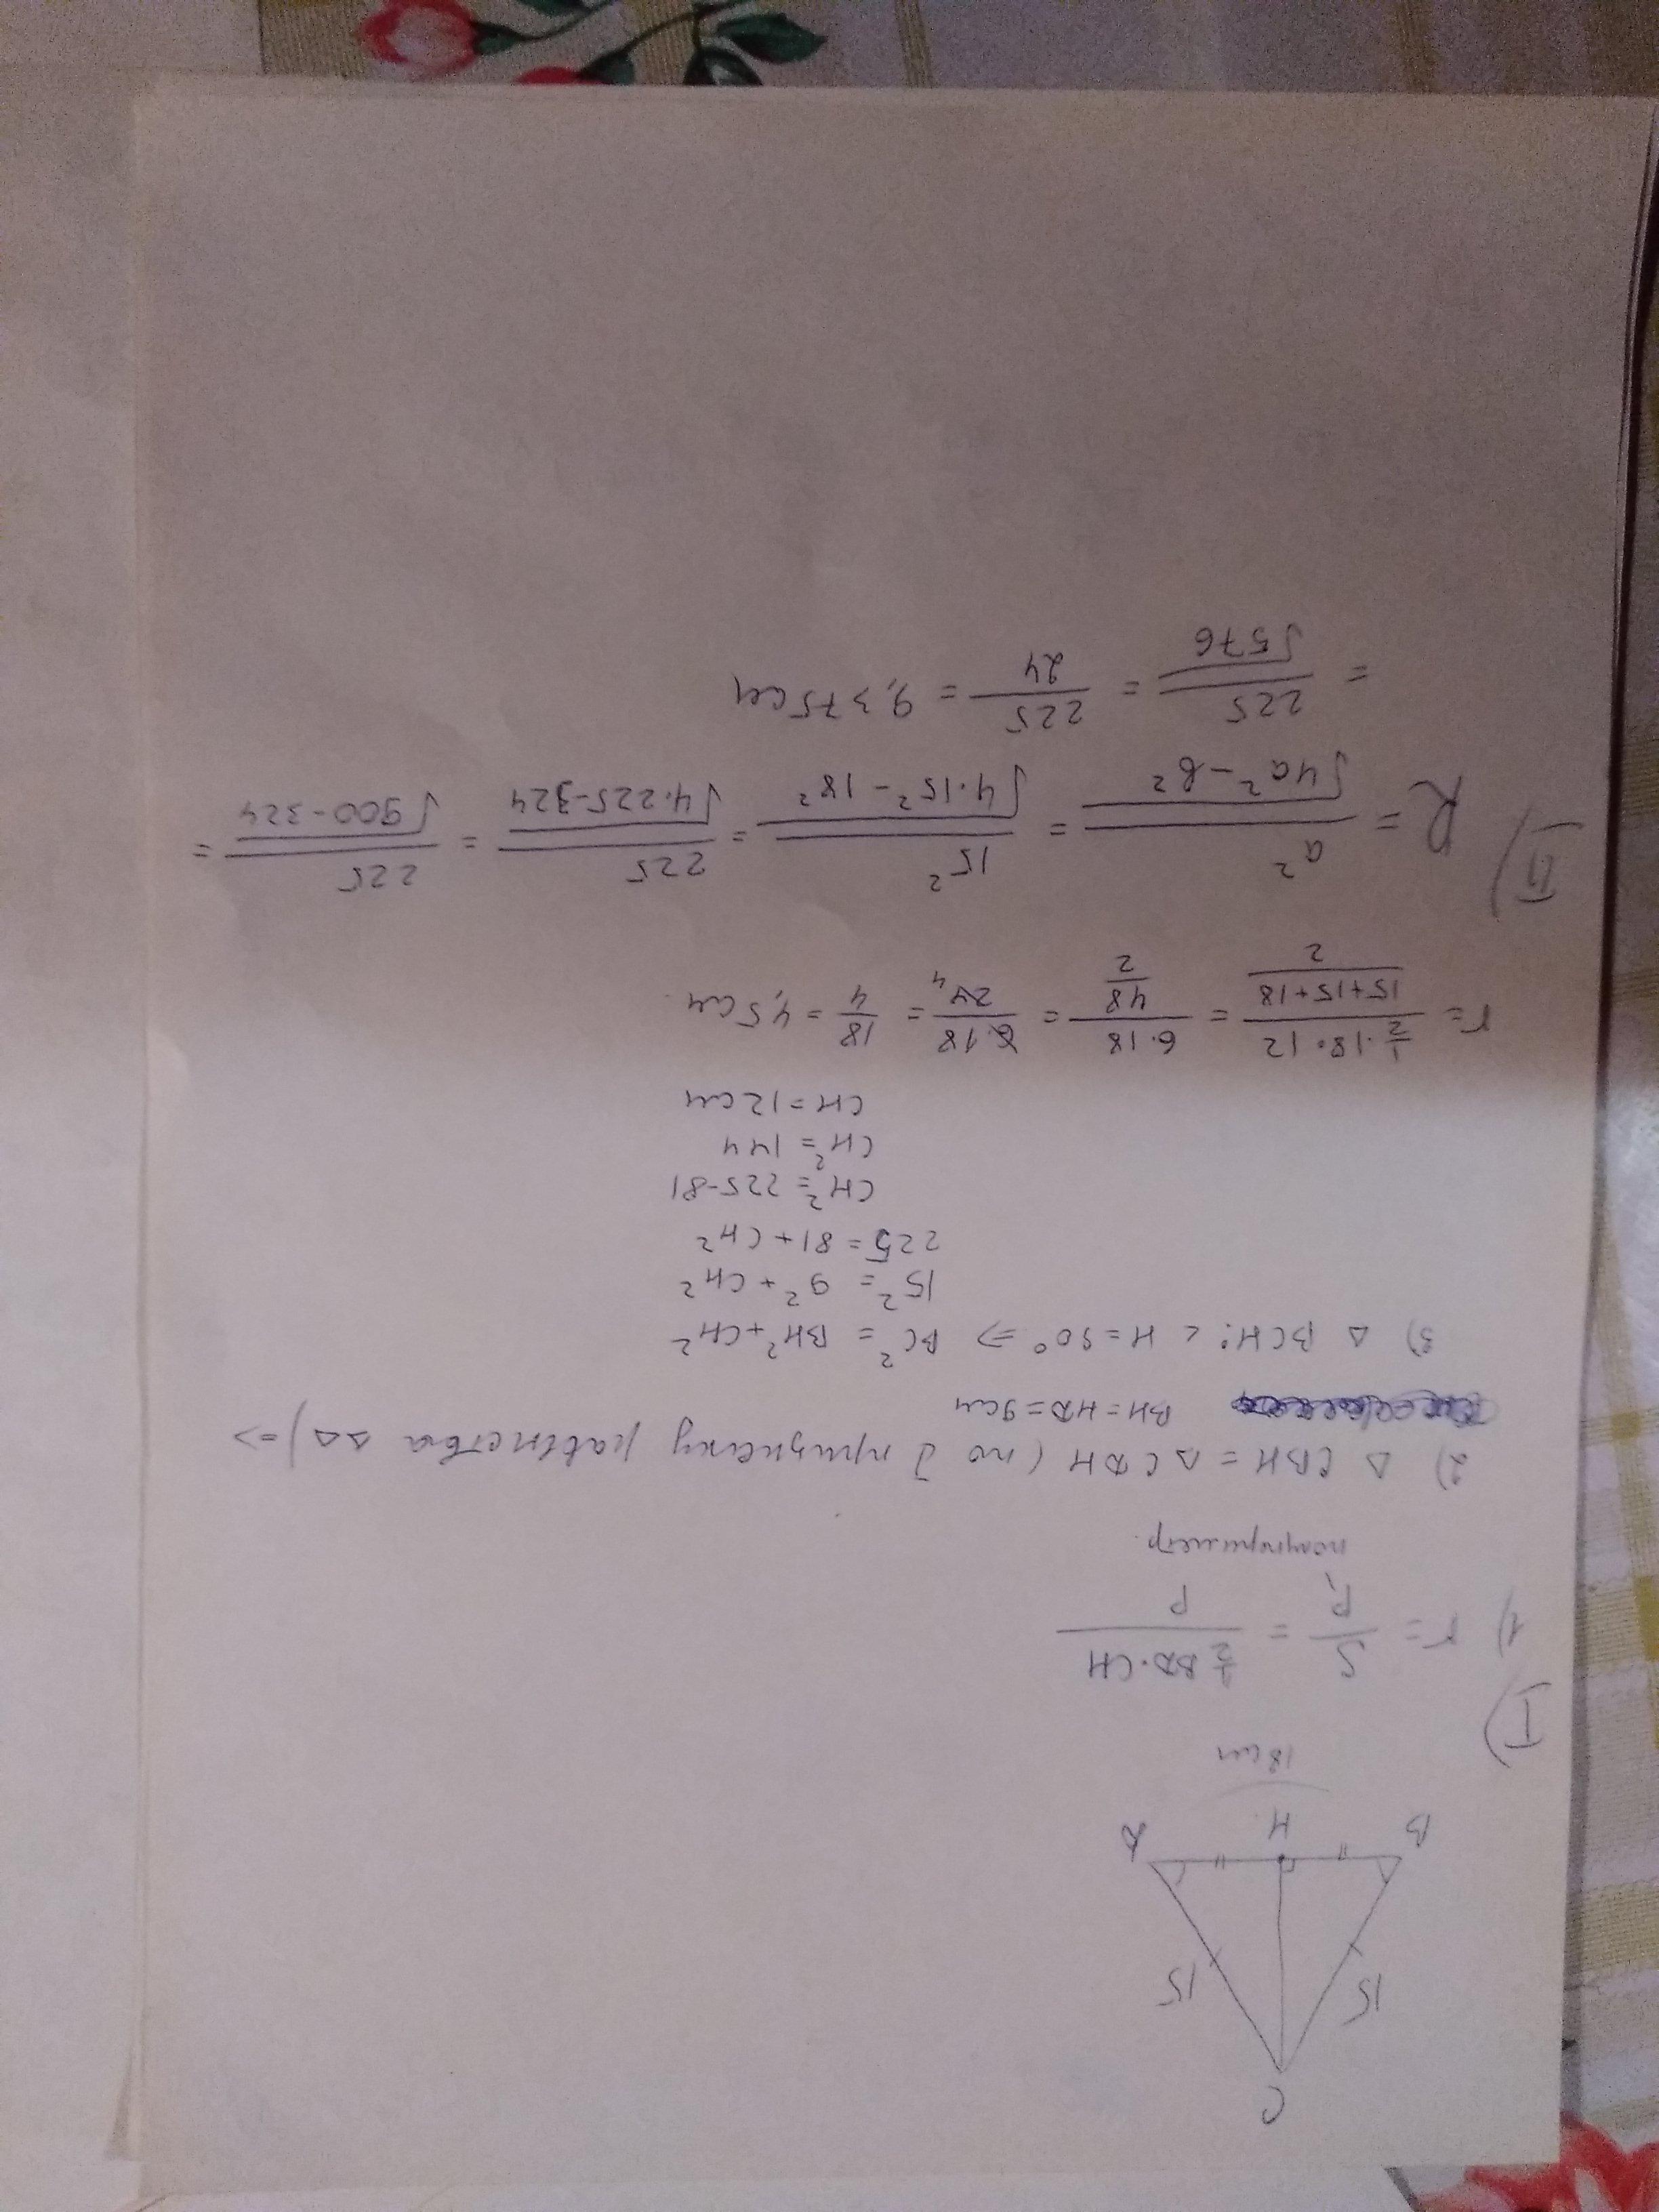 C
15 15
B H D
18 см
I)
1) r = S/P₁ = (1/2 BD·CH)/P
полупериметр.
2) Δ CBH = Δ CDH (по 2 признаку равенства ΔΔ) =>
BH = HD = 9см
3) Δ BCH: < H = 90° => BC² = BH² + CH²
15² = 9² + CH²
225 = 81 + CH²
CH² = 225-81
CH² = 144
CH = 12см
r = (1/2·18·12)/((15+15+18)/2) = (6·18)/(48/2) = (6·18)/24 4 = 18/4 = 4,5см.
II)
R = a²/√4a²-b² = 15²/√4·15²-18² = 225/√4·225-324 = 225/√900-324 =
= 225/√576 = 225/24 = 9,375см